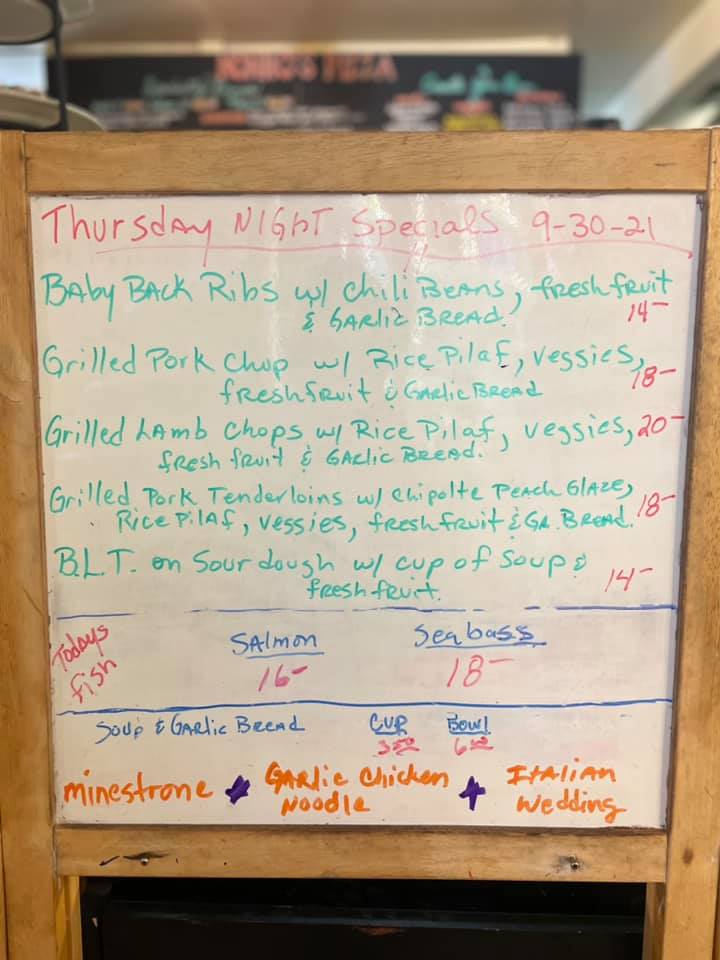 Thursday NIGHT Specials 9-30-21
BABy BACK Ribs w/ chili BEANS, fresh fruit
& GARLIC BREAD. 14-
Grilled Pork Chop w/ Rice Pilaf, veggies,
fresh fruit & GARLIC BREAD 18-
Grilled LAMB Chops w/ Rice Pilaf, veggies, 20-
fresh fruit & GARLIC BREAD.
Grilled Pork Tenderloins w/ Chipolte PEACH GLAZE,
Rice Pilaf, veggies, fresh fruit & GA. BREAD. 18-
B.L.T. on Sour dough w/ cup of soup &
fresh fruit. 14-
Todays
fish
SAlmon
16-
Sea bass
18-
Soup & GARLIC BREAD
CUP
Bowl
minestrone
GARlic Chicken
Noodle
ITALIAN
Wedding